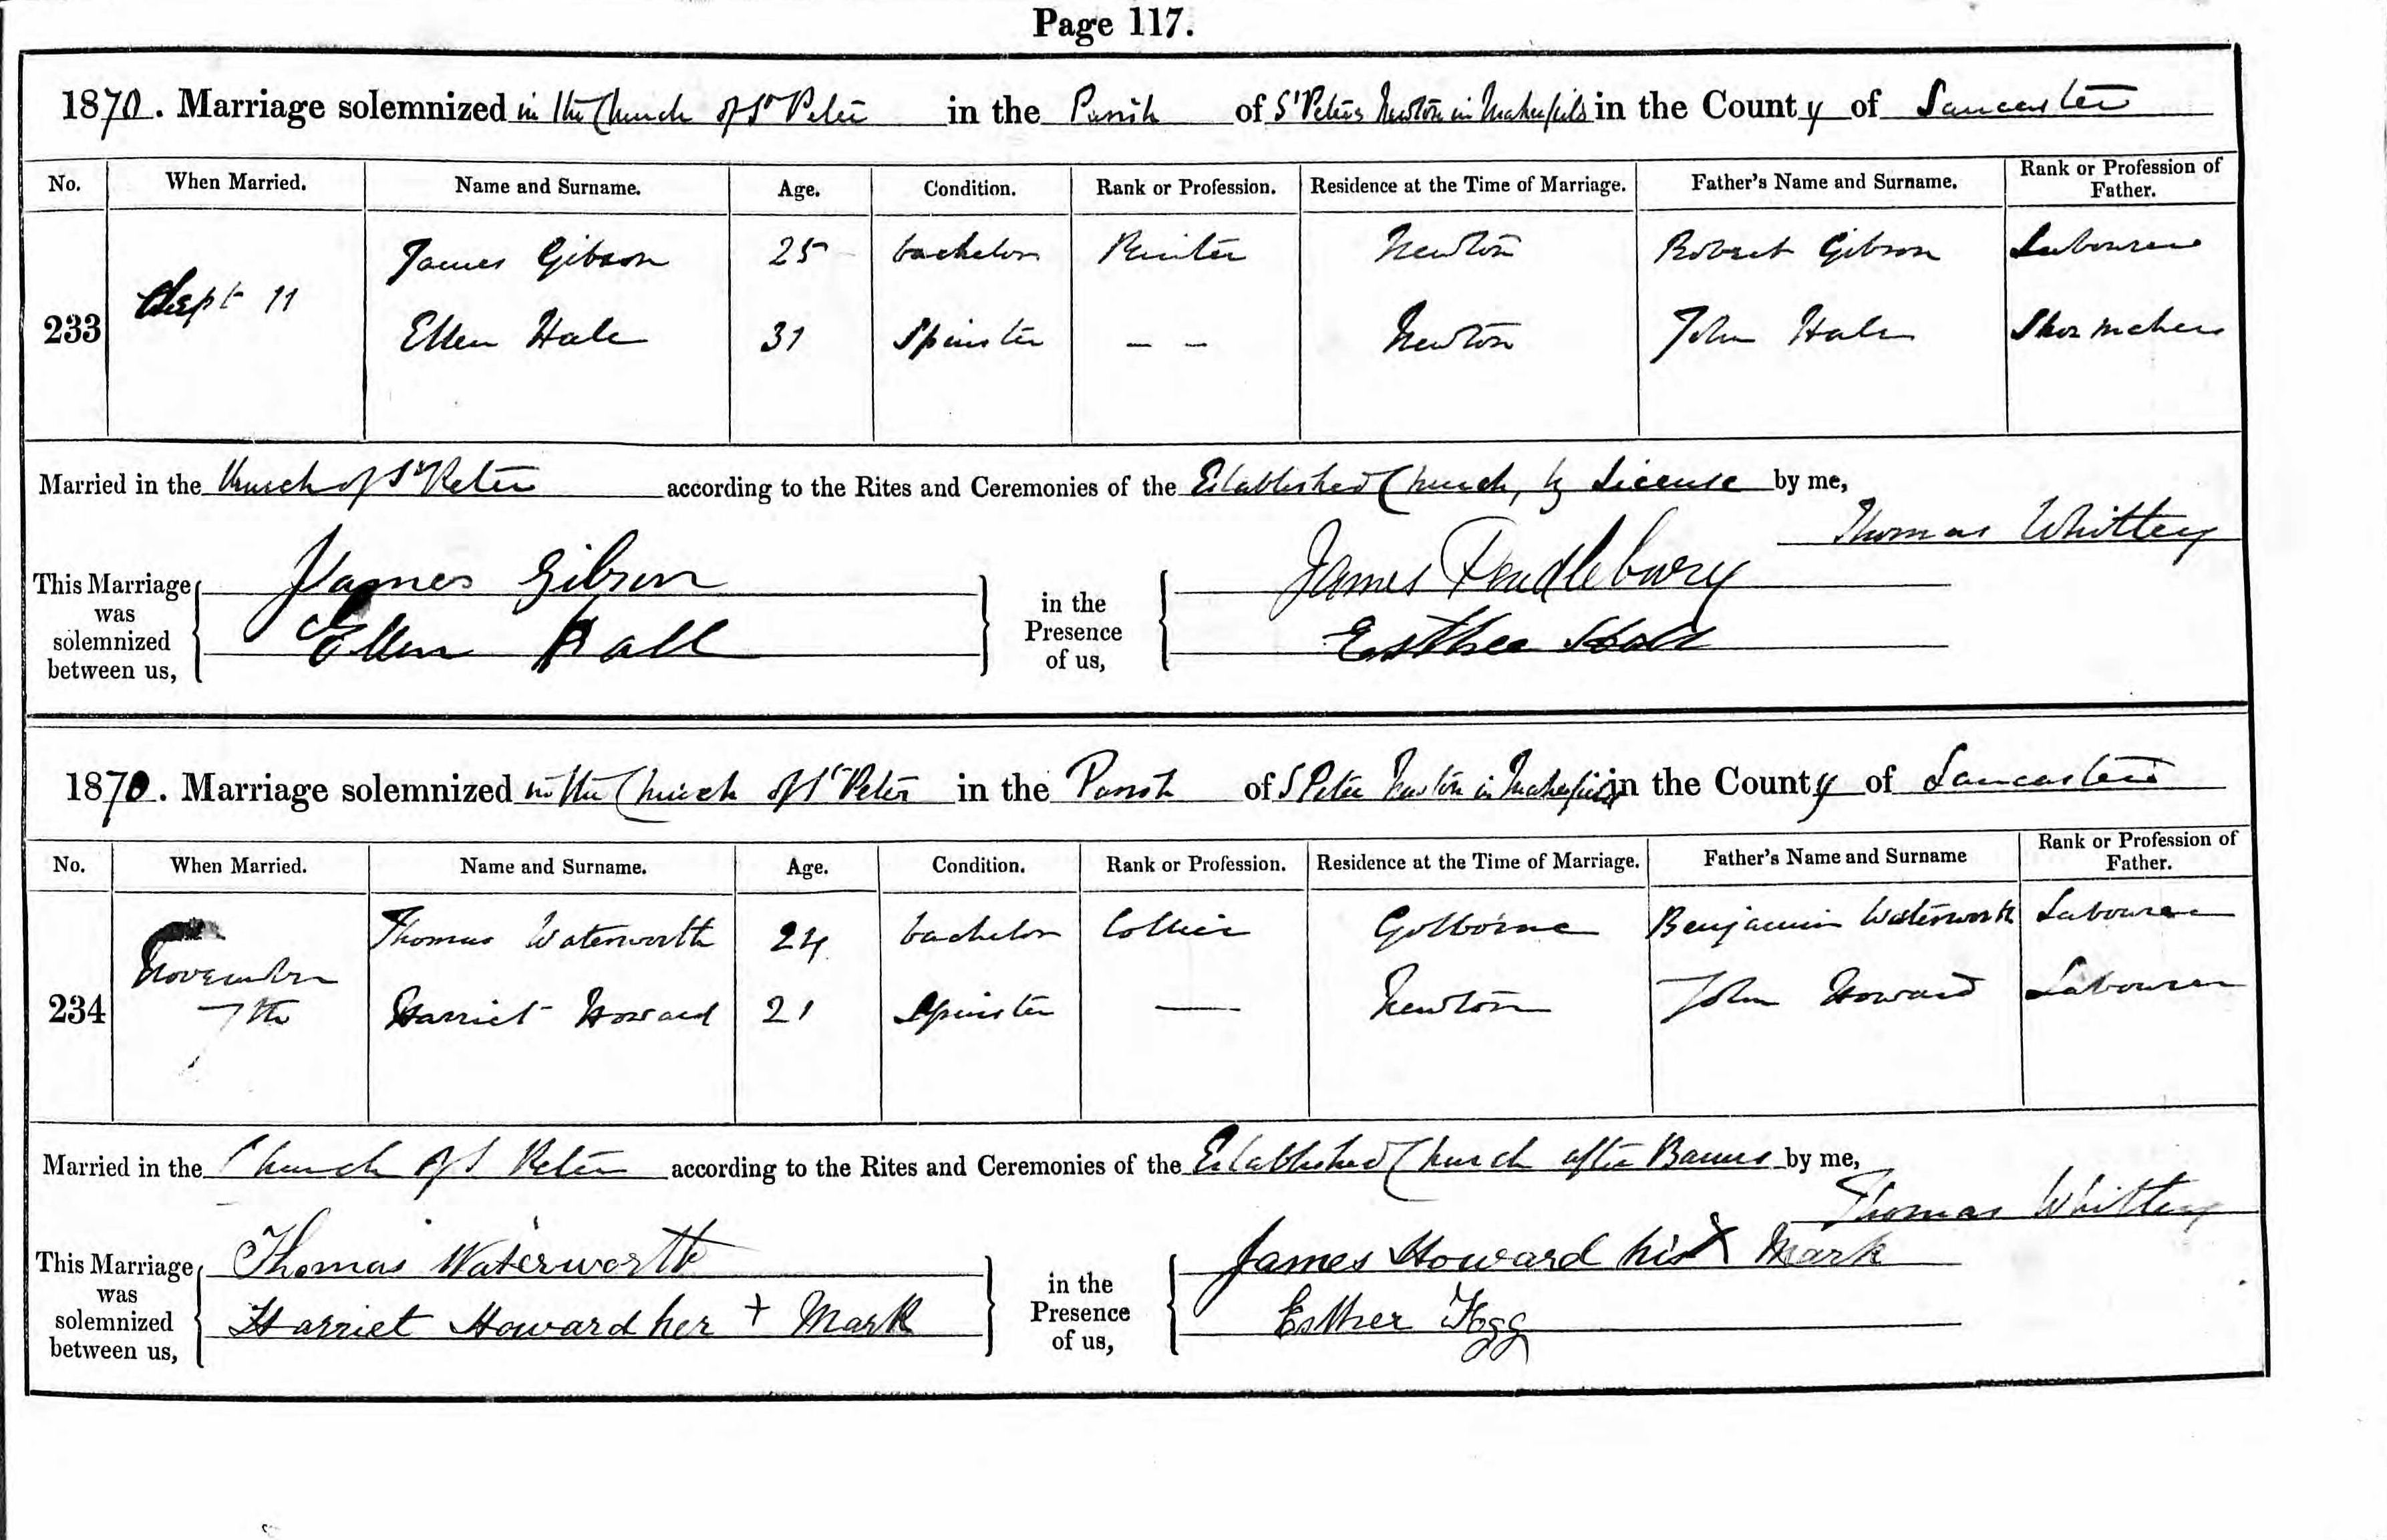 Page 117.
1870. Marriage solemnized in the Church of St Peter in the Parish of St Peters Newton in Makerfield in the County of Lancaster
No. When Married. Name and Surname. Age. Condition. Rank or Profession. Residence at the Time of Marriage. Father's Name and Surname. Rank or Profession of Father.
James Gibson 25 bachelor Newton Robert Gibson Labourer
233 Sept 11 Ellen Hale 31 Spinster – – Newton John Hale Shoe maker
Married in the Church of St Peter according to the Rites and Ceremonies of the Established Church, by License by me,
Thomas Whitley
This Marriage was solemnized between us, James Gibson in the Presence of us, James Pendlebury
Ellen Hall Esther
1870. Marriage solemnized in the Church of St Peter in the Parish of S Peter Newton in Makerfield in the County of Lancaster
No. When Married. Name and Surname. Age. Condition. Rank or Profession. Residence at the Time of Marriage. Father's Name and Surname Rank or Profession of Father.
Thomas Waterworth 24 bachelor Collier Golborne Benjamin Waterworth Labourer
234 November 7th Harriet Howard 21 Spinster — Newton John Howard Labourer
Married in the Church of S Peter according to the Rites and Ceremonies of the Established Church after Banns by me,
Thomas Whitley
This Marriage was solemnized between us, Thomas Waterworth in the Presence of us, James Howard his X Mark
Harriet Howard her + Mark Esther Fogg